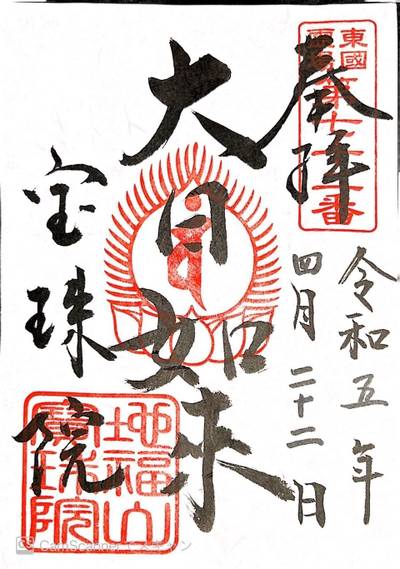 東國
奉拝
令和五年
四月二十二日
大日如来
宝珠院
地福山
寶珠院
CamScanner でスキャン